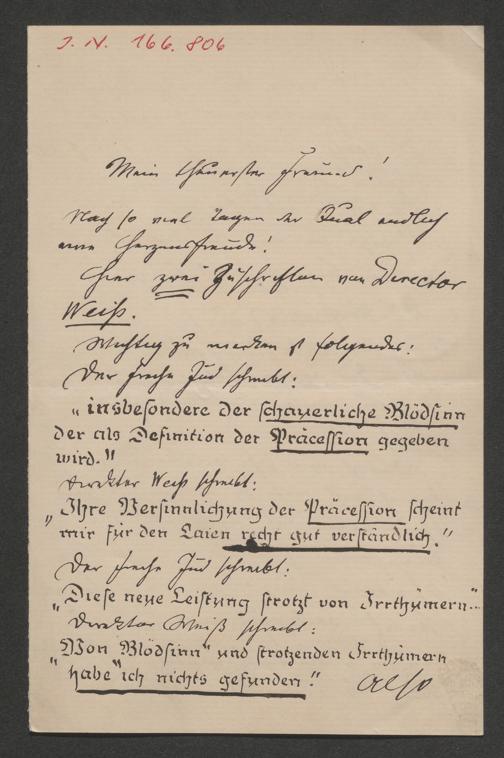 J. N. 166.806
Mein theuerster Freund!
Nach so viel Tagen der Qual endlich
eine Herzensfreude!
Hier zwei Zuschriften von Director
Weiß.
Wichtig zu merken ist folgendes:
Der freche Jud schreibt:
"insbesondere der schauerliche Blödsinn
der als Definition der Präcession gegeben
wird."
Direktor Weiß schreibt:
"Ihre Versinnlichung der Präcession scheint
mir für den Laien recht gut verständlich."
Der freche Jud schreibt:
"Diese neue Leistung strotzt von Irrthümern"
Direktor Weiß schreibt:
"Von Blödsinn" und strotzenden Irrthümern
"habe ich nichts gefunden."
also